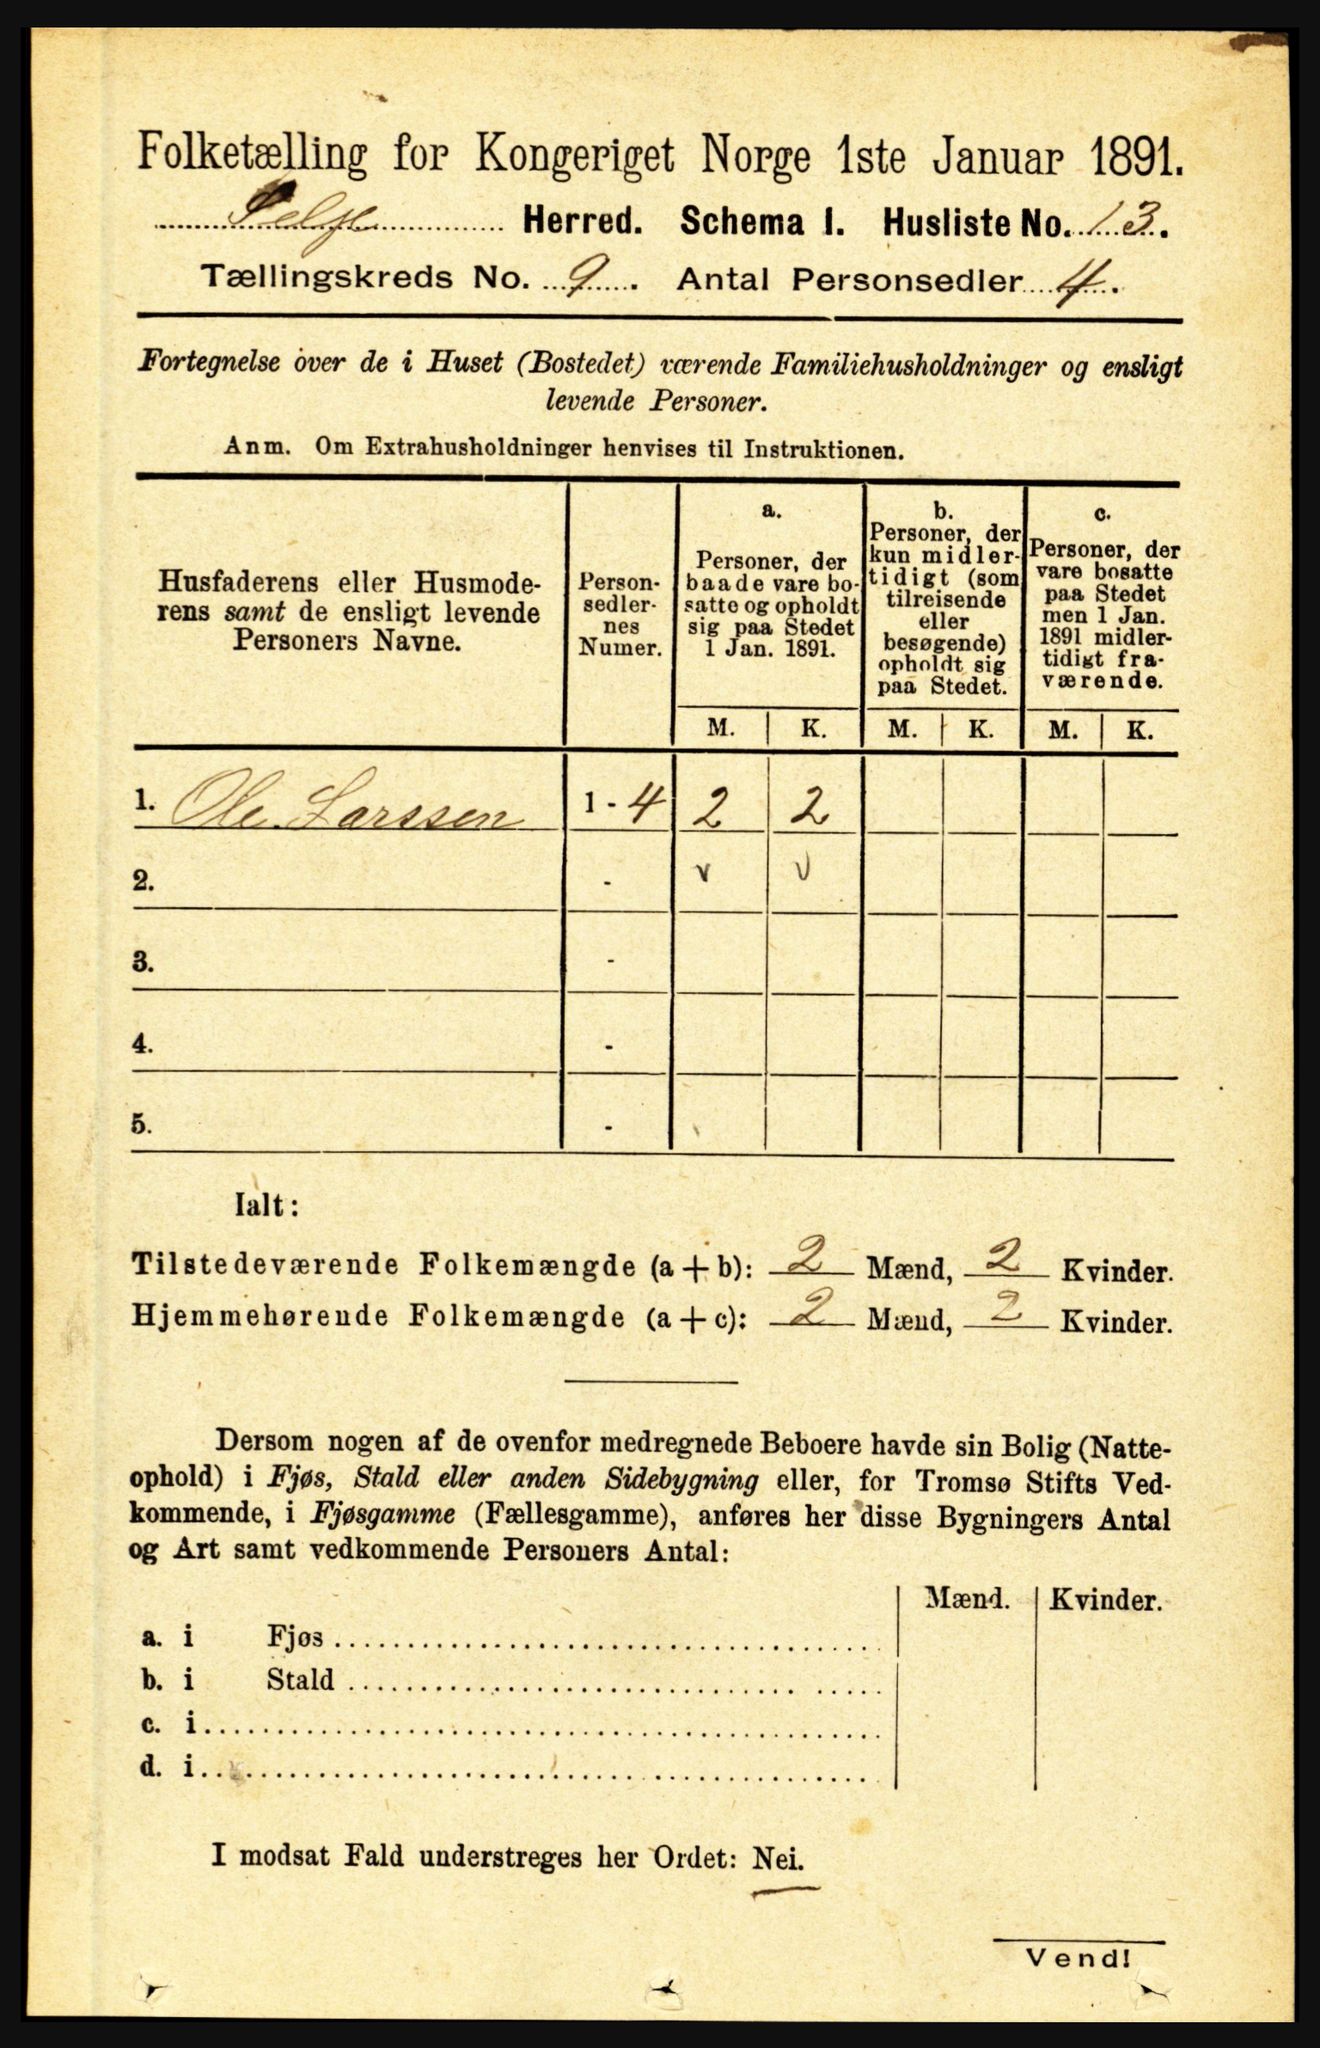 Folketælling for Kongeriget Norge 1ste Januar 1891.
Selje Herred. Schema I. Husliste No. 13.
Tællingskreds No. 9. Antal Personsedler 4.
Fortegnelse over de i Huset (Bostedet) værende Familiehusholdninger og ensligt
levende Personer.
Anm. Om Extrahusholdninger henvises til Instruktionen.
Husfaderens eller Husmode-
rens samt de ensligt levende
Personers Navne.
Person-
sedler-
nes
Numer.
a.
Personer, der
baade vare bo-
satte og opholdt
sig paa Stedet
1 Jan. 1891.
b.
Personer, der
kun midler-
tidigt (som
tilreisende
eller
besøgende)
opholdt sig
paa Stedet.
c.
Personer, der
vare bosatte
paa Stedet
men 1 Jan.
1891 midler-
tidigt fra-
værende.
M. K. M. K. M. K.
1. Ole Larssen 1 - 4 2 2
2. - v v
3. -
4. -
5. -
Ialt:
Tilstedeværende Folkemængde (a + b): 2 Mænd, 2 Kvinder.
Hjemmehørende Folkemængde (a + c): 2 Mænd, 2 Kvinder.
Dersom nogen af de ovenfor medregnede Beboere havde sin Bolig (Natte-
ophold) i Fjøs, Stald eller anden Sidebygning eller, for Tromsø Stifts Ved-
kommende, i Fjøsgamme (Fællesgamme), anføres her disse Bygningers Antal
og Art samt vedkommende Personers Antal:
Mænd. Kvinder.
a. i Fjøs
b. i Stald
c. i
d. i
I modsat Fald understreges her Ordet: Nei.
Vend!